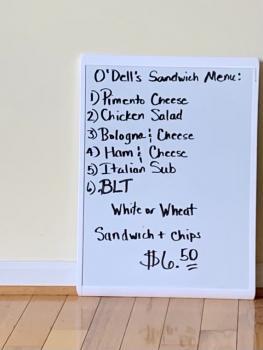 O'Dell's Sandwich Menu:
1) Pimento Cheese
2) Chicken Salad
3) Bologna & Cheese
4) Ham & Cheese
5) Italian Sub
6) BLT
White or Wheat
Sandwich + Chips
$6.50